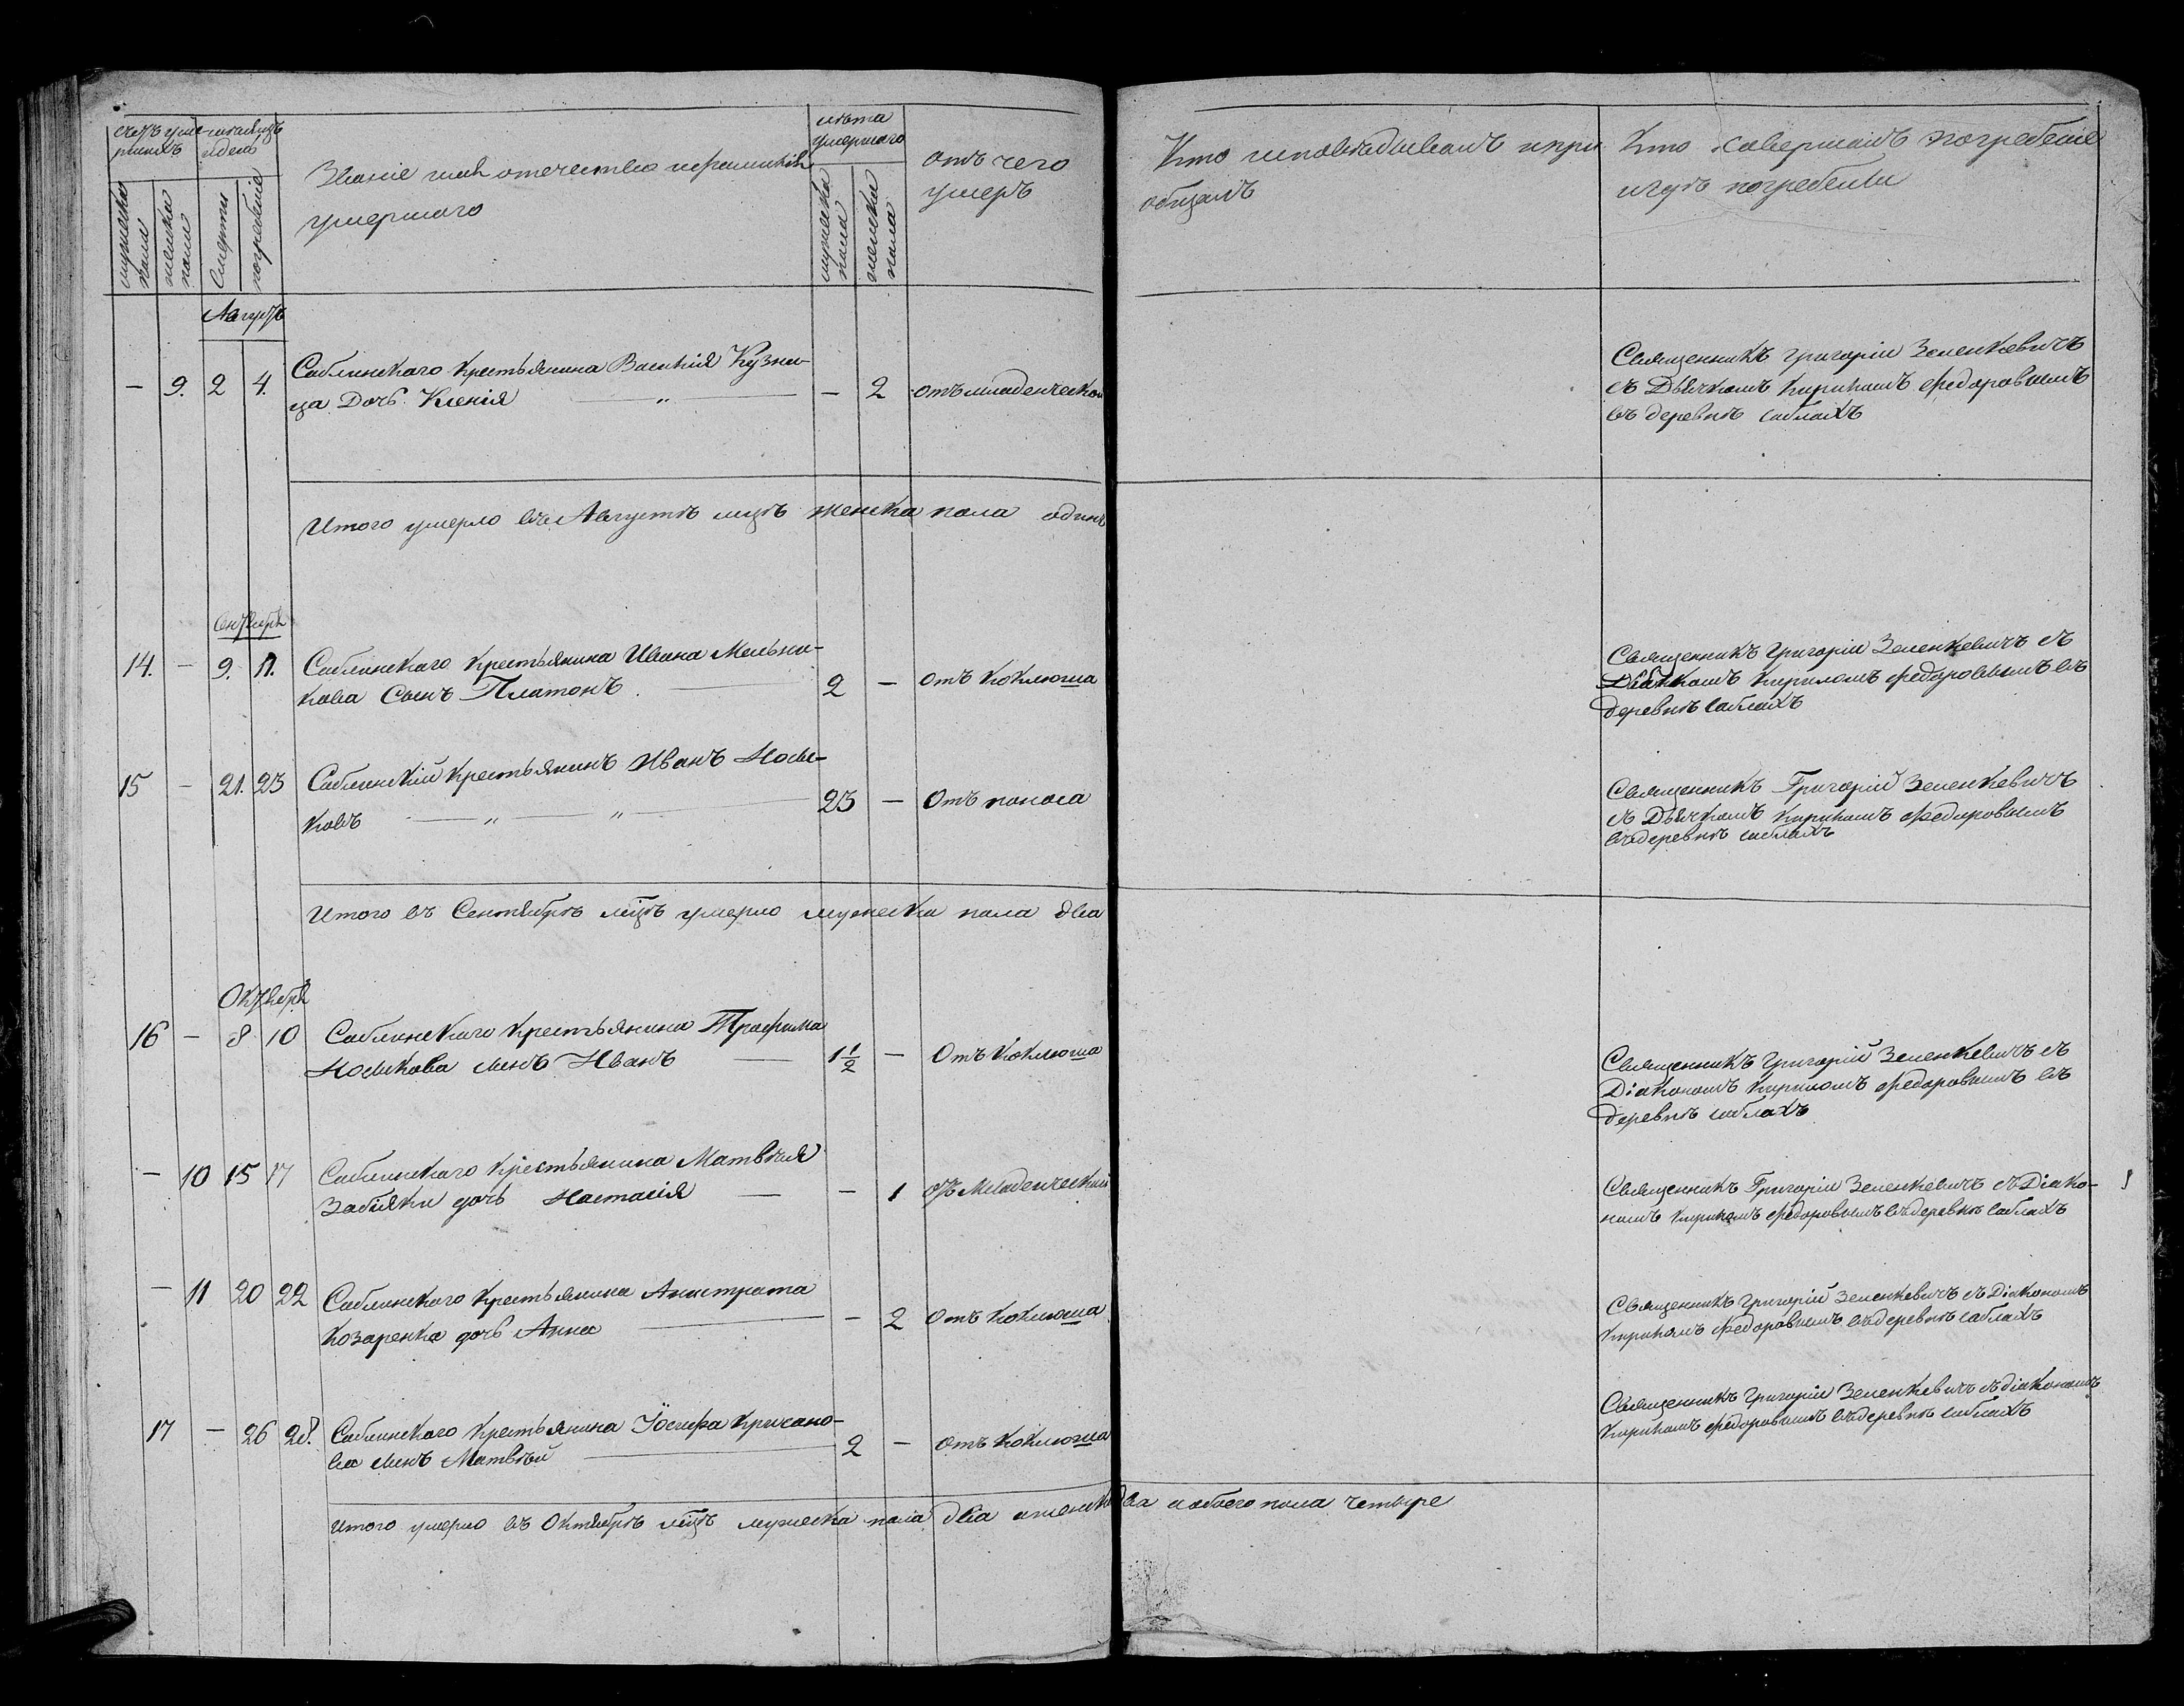 Счетъ умершихъ
мѣсяцъ и день
Званіе имя отечество и фамилія
умершаго
лѣта
умершаго
отъ чего
умеръ
Кто исповѣдывалъ и при
общалъ
Кто совершалъ погребеніе
и гдѣ погребены
мужеска пола
женска пола
Смерти
погребенія
мужеска пола
женска пола
Августъ
— 9. 2 4. Саблинскаго Крестьянина Василія Кузне-
ца Дочь Ксенія — 2 отъ младенческой
Священникъ Григорій Зеленкевичъ
съ Дьячкомъ Кириломъ Федоровымъ
въ деревнѣ Саблахъ
Итого умерло въ Августѣ мцѣ женска пола одинъ
Сентября
14. — 9. 11. Саблинскаго Крестьянина Ивана Мельни-
кова Сынъ Платонъ 2 — Отъ Коклюша
Священникъ Григорій Зеленкевичъ съ
Дьячкомъ Кириломъ Федоровымъ въ
деревнѣ Саблахъ
15 — 21. 23 Саблинскій Крестьянинъ Иванъ Носи-
ковъ 23 — Отъ поноса
Священникъ Григорій Зеленкевичъ
съ Дьячкомъ Кириломъ Федоровымъ
въ деревнѣ Саблахъ
Итого въ Сентябрѣ мцѣ умерло мужеска пола два
Октября
16 — 8 10 Саблинскаго Крестьянина Трофима
Носикова сынъ Иванъ 1 1/2 — Отъ Коклюша
Священникъ Григорій Зеленкевичъ съ
Діакономъ Кириломъ Федоровымъ въ
деревнѣ Саблахъ
— 10 15 17 Саблинскаго Крестьянина Матвѣя
Забіяки дочь Настасія — 1 отъ Младенческой
Священникъ Григорій Зеленкевичъ съ Діако-
номъ Кириломъ Федоровымъ въ деревнѣ Саблахъ
— 11 20 22 Саблинскаго Крестьянина Анистрата
Козаренка дочь Анна — 2 Отъ Коклюша
Священникъ Григорій Зеленкевичъ съ Діакономъ
Кириломъ Федоровымъ въ деревнѣ Саблахъ
17 — 26 28. Саблинскаго Крестьянина Іосифа Крисано-
ва сынъ Матвѣй 2 — Отъ Коклюша
Священникъ Григорій Зеленкевичъ съ діакономъ
Кириломъ Федоровымъ въ деревнѣ Саблахъ
Итого умерло въ Октябрѣ мцѣ мужеска пола два а женска два а обоего пола четыре